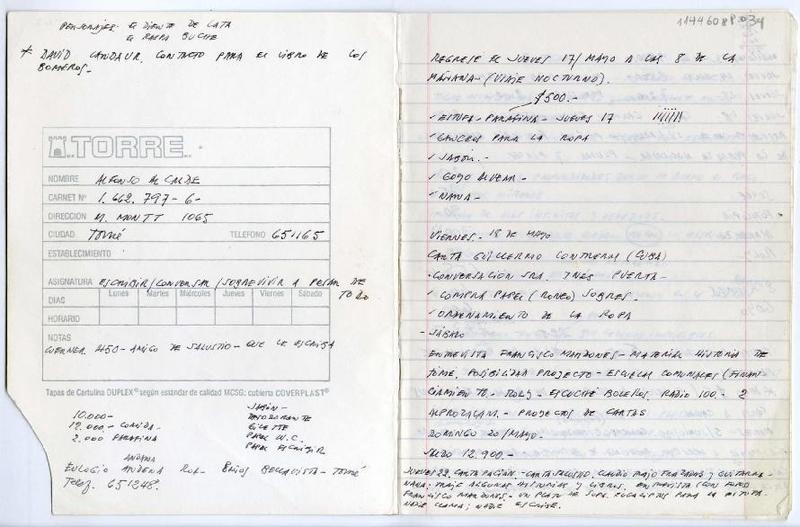 PERSONAJES: EL DIENTE DE LATA
EL RASPA BUCHE
* DAVID LANDAUR, CONTACTO PARA EL LIBRO DE LOS
BOMBEROS-
TORRE
NOMBRE ALFONSO ALCALDE
CARNET Nº 1.662.797-6-
DIRECCION M. MONTT 1065
CIUDAD TOMÉ TELEFONO 651165
ESTABLECIMIENTO
ASIGNATURA ESCRIBIR/CONVERSAR/SOBREVIVIR A PESAR DE
TODO
DIAS Lunes Martes Miércoles Jueves Viernes Sábado
HORARIO
NOTAS
WERNER 2450- AMIGO DE SALUSTIO- QUE LE ESCRIBA
Tapas de Cartulina DUPLEX® según estándar de calidad MCSG: cubierta COVERPLAST®
10.000-
12.000- COMIDA-
2.000 PARAFINA
JABÓN-
DESODORANTE
GILETTE
PAPEL W.C.
PAPEL ESCRIBIR
EULOGIO ANDANA ROA- BELLAVISTA- TOMÉ
TELEF. 651248.
REGRESE EL JUEVES 17/MAYO A LAS 8 DE LA
MAÑANA- (VIAJE NOCTURNO).
$500.-
✓ESTUFA- PARAFINA- JUEVES 17
✓GANCHOS PARA LA ROPA
✓JABON.-
✓GOYO ALVEAR-
✓NANA-
VIERNES- 18 DE MAYO
CARTA GUILLERMO CONTRERAS (CUBA)
-CONVERSACION SRA. INES PUERTA-
✓COMPRA PAPEL (RONEO) SOBRES.
✓ORDENAMIENTO DE LA ROPA
-SÁBADO
ENTREVISTA FRANCISCO MARDONES- MATERIAL HISTORIA DE
TOMÉ. POSIBILIDAD PROYECTO- ESCUELAS COMUNALES (FINAN-
CIAMIENTO- ESCUCHÉ BOLEROS, RADIO 100.- 2
ALPROZALAM.- PROYECTOS DE CARTAS
DOMINGO 20/MAYO.-
12.900-
JUEVES 22. CARTA SALUSTIO. CLAUDIO TRAJO FRAZADAS Y GUITARRA-
NANA: TRAJE ALGUNAS HISTORIAS Y LIBROS. ENTREVISTA CON
FRANCISCO MARDONES- UN PLATO DE SOPA. EUCALIPTUS PARA LA ESTUFA.
NADIE LLAMA; NADIE ESCRIBE.